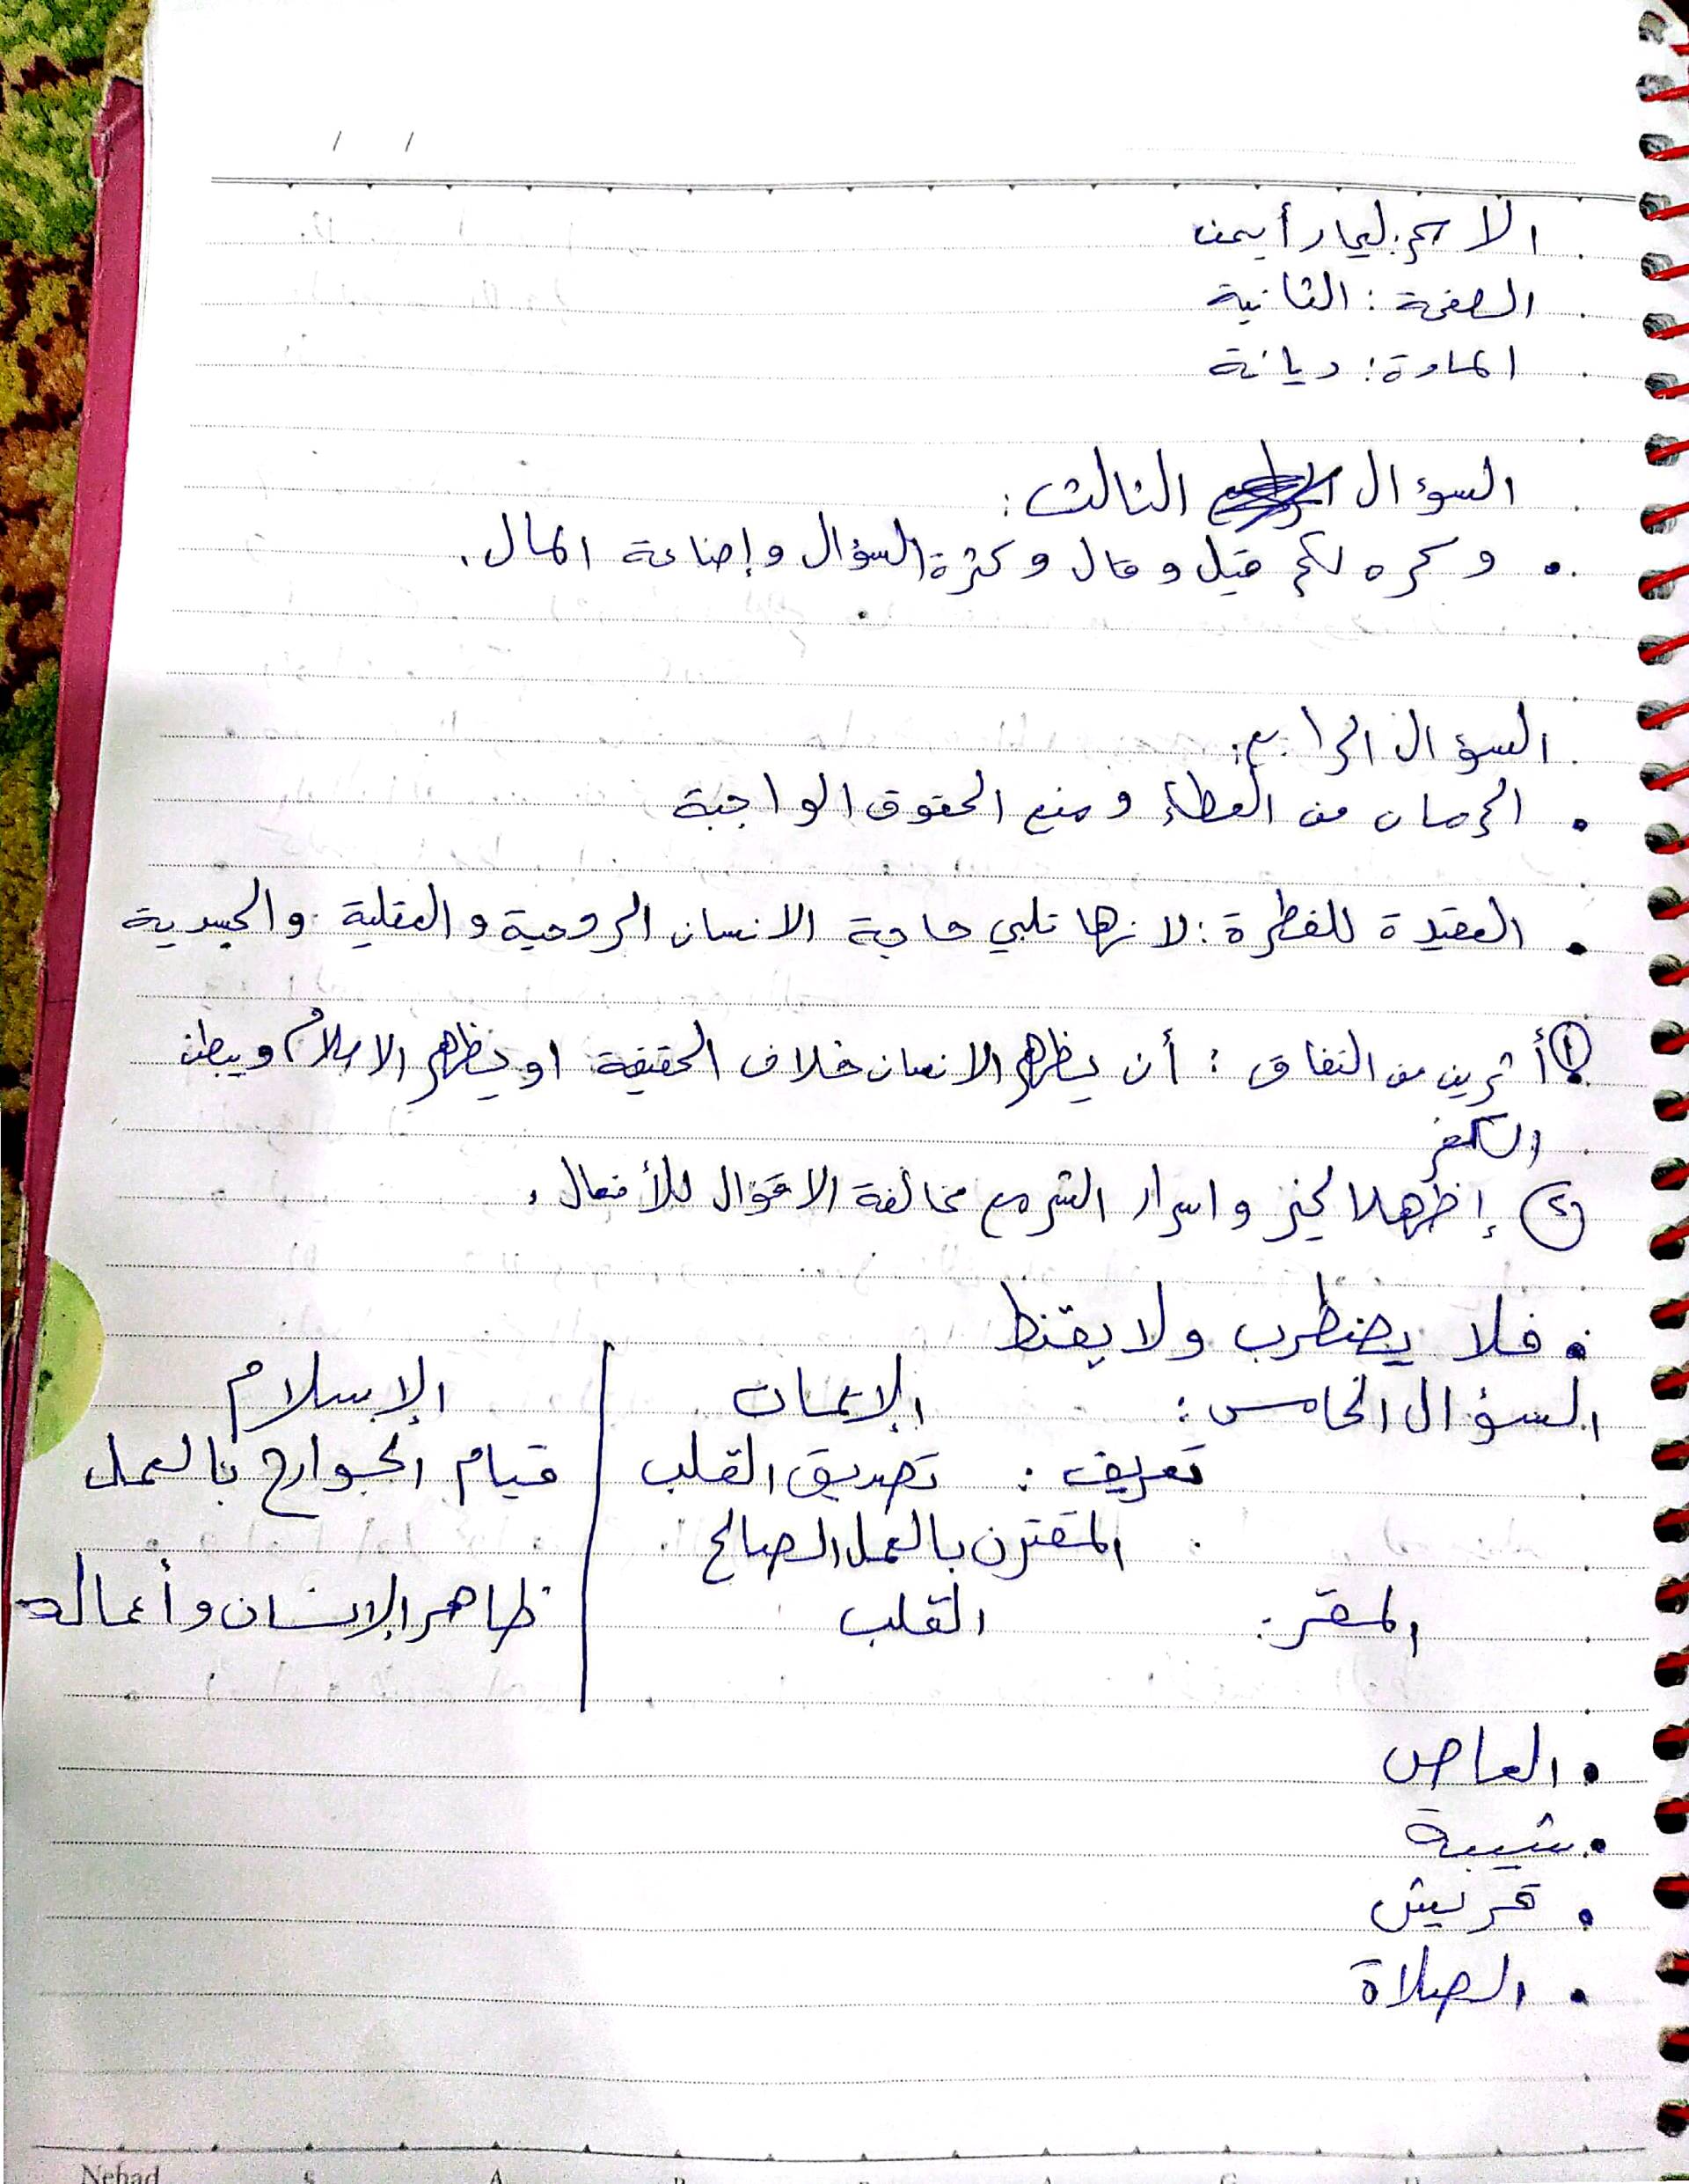 الاسم: ليمار أيمن
الصفحة: الثانية
المادة: ديانة
السؤال الثالث:
• وكره لكم قيل وقال وكثرة السؤال وإضاعة المال.
السؤال الرابع:
• الحرمان من العطاء ومنع الحقوق الواجبة
• العقيدة للفطرة: لانها تلبي حاجة الانسان الروحية والعقلية والجسدية
① أثرين من النفاق: أن يظهر الانسان خلاف الحقيقة او يظهر الاسلام ويبطن
الكفر
② إظهار الخير واسرار الشر مع مخالفة الاقوال للأفعال.
• فلا يضطرب ولا يقنط
السؤال الخامس: الإيمان | الإسلام
تعريف: تصديق القلب | قيام الجوارح بالعمل
المقترن بالعمل الصالح
المقر: القلب | ظاهر الإنسان وأعماله
• العاص
• شيبة
• قريش
• الصلاة
Nehad